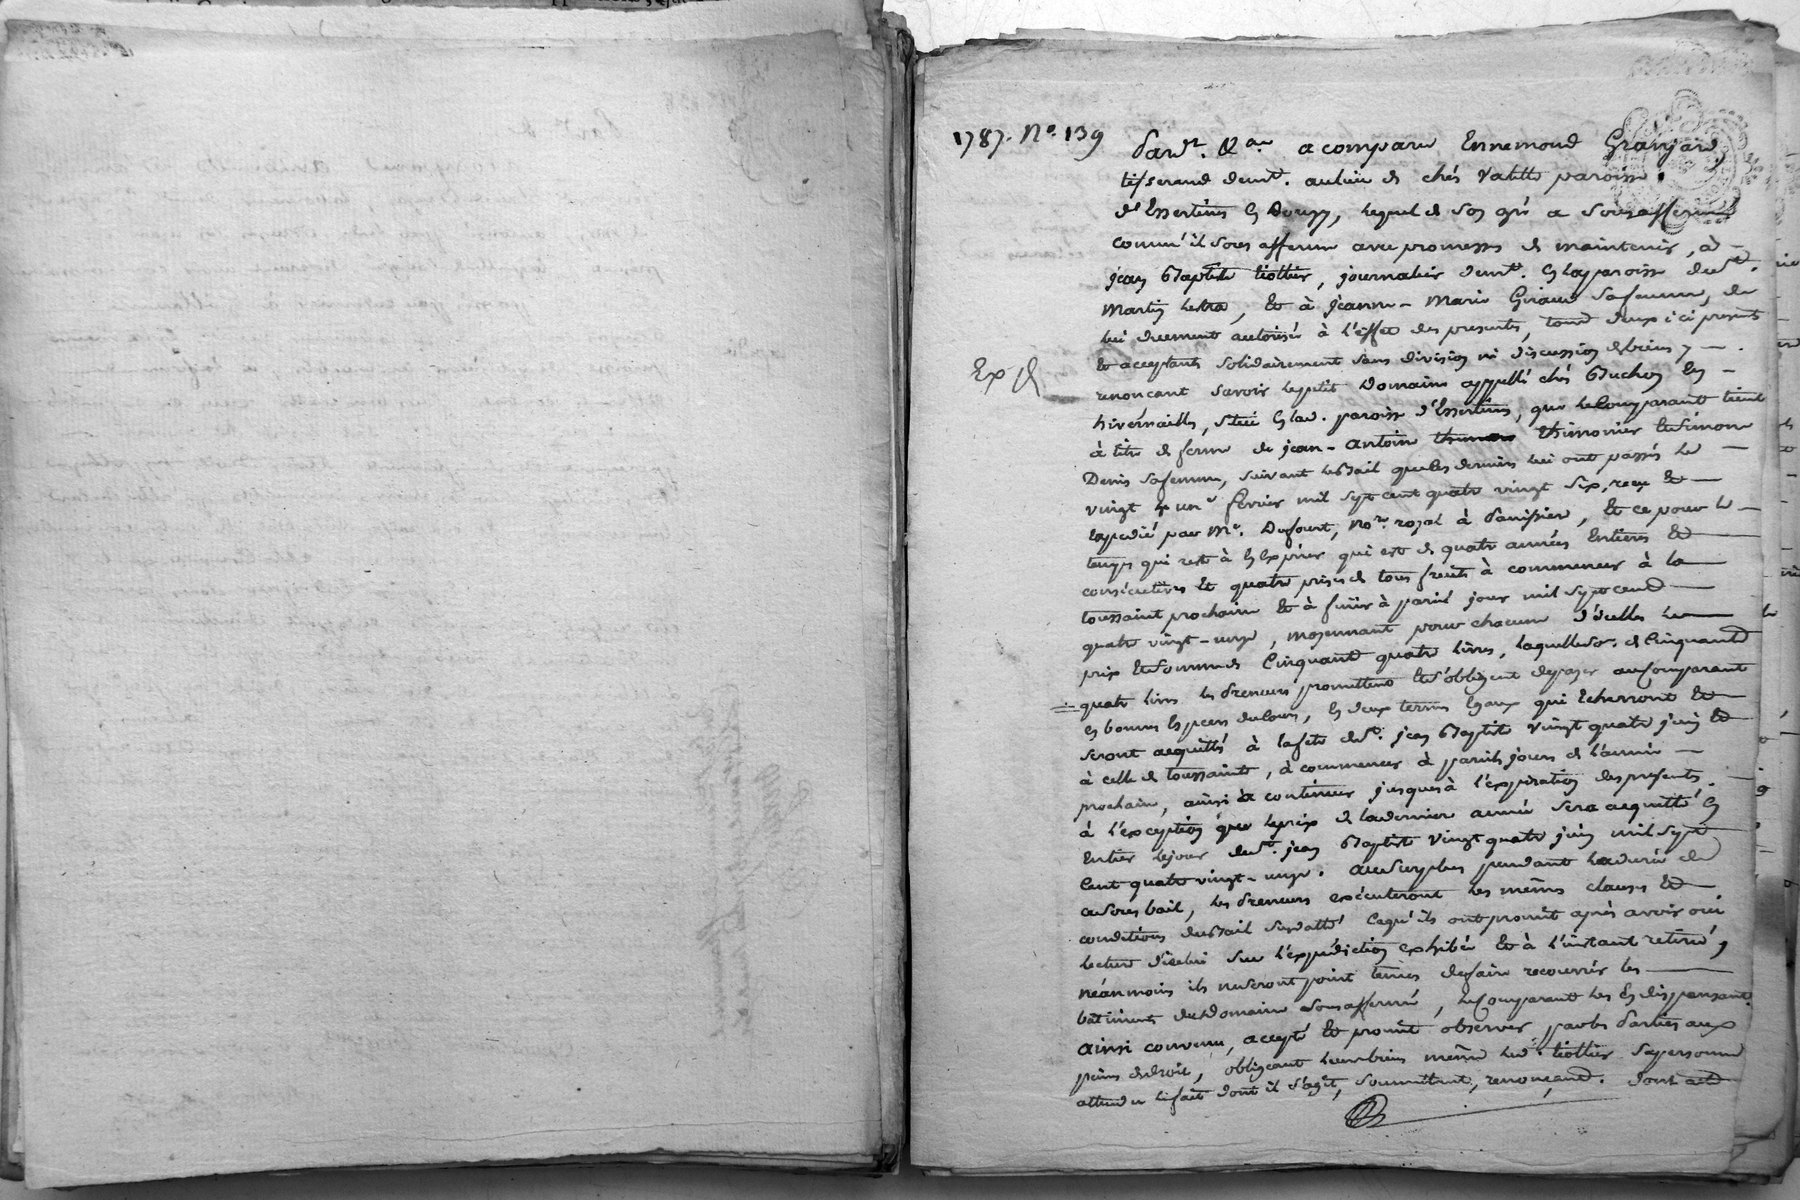 1787. N°. 139
Pard^t. &a a comparu Ennemond Granjard
tisserand dem^t. au lieu de chés Valette paroisse
d'Essertines en Donzy, lequel de son gré a sousaffermé
comm'il sous afferme avec promesses de maintenir, à
jean Baptiste tiollier, journalier dem^t. en la paroisse de S^t.
Martin Lestra, et à jeanne-Marie Giraud sa femme, de
lui duement autorisée à l'effet des presentes, tous deux ici presents
et acceptants solidairement sans division ni discussion de biens y
Exp^é
renoncant savoir le petit Domaine appellé chés Buchon les
hivernailles, situé en lad. paroisse d'Essertines, que le Comparant tient
à titre de ferme de jean-antoine thimonier et Simone
Denis sa femme, suivant le Bail que les derniers lui ont passés le
vingt un fevrier mil sept cent quatre vingt six, recu et
expedié par M^e. Dufourt, No^re. royal à panissiere, et ce pour le
temps qui reste à en expirer qui est de quatre années entieres et
consécutives et quatre prises de tous fruits à commencer à la
toussaint prochaine et à finir à pareil jour mil sept cent
quatre vingt-onze, moyennant pour chacune d'icelles le
prix et somme de Cinquante quatre livres, laquelle so^e. de Cinquante
quatre livres les preneurs promettent et s'obligent de payer au Comparant
en bonnes especes du cours, en deux termes egaux qui echerront et
seront acquittés à la fete de S^t. jean Baptiste vingt quatre juin et
à celle de toussaints, à commencer à pareils jours de l'année
prochaine, ainsi à continuer jusques à l'expiration des presentes.
à l'exception que le prix de la derniere année sera acquitté en
Entier le jour de S^t. jean Baptiste vingt quatre juin mil sept
Cent quatre vingt-onze. au surplus pendant la durée de
ce sous bail, les preneurs exécuteront les mêmes clauses et
conditions du Bail susdatté ce qu'ils ont promit après avoir oui
lecture d'icelui sur l'expédiction exhibée et à l'instant retirée,
néanmoins ils ne seront point tenus de faire recouvrir les
bâtiments du Domaine sousaffermé, le Comparant les en dispensant.
ainsi convenu, accepté et promit observer par les Parties aux
peines de droit, obligeant leurs biens même led. tiollier sa personne
attendu le fait dont il s'agit, soumettant, renoncant. dont acte